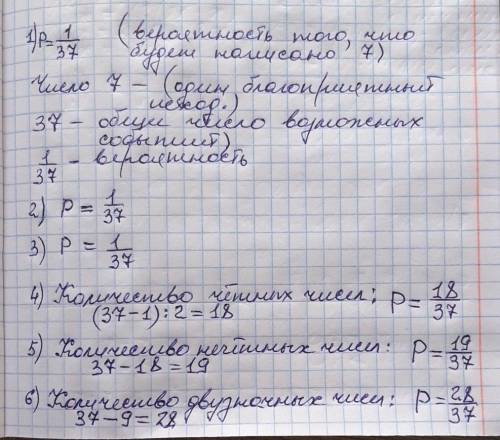 1) P = 1/37 (вероятность того, что
будет написано 7)
Число 7 – (один благоприятный
исход.)
37 – общее число возможных
событий)
1/37 – вероятность
2) P = 1/37
3) P = 1/37
4) Количество чётных чисел; P = 18/37
(37-1):2 = 18
5) Количество нечётных чисел: P = 19/37
37-18 = 19
6) Количество двузначных чисел: P = 28/37
37-9 = 28